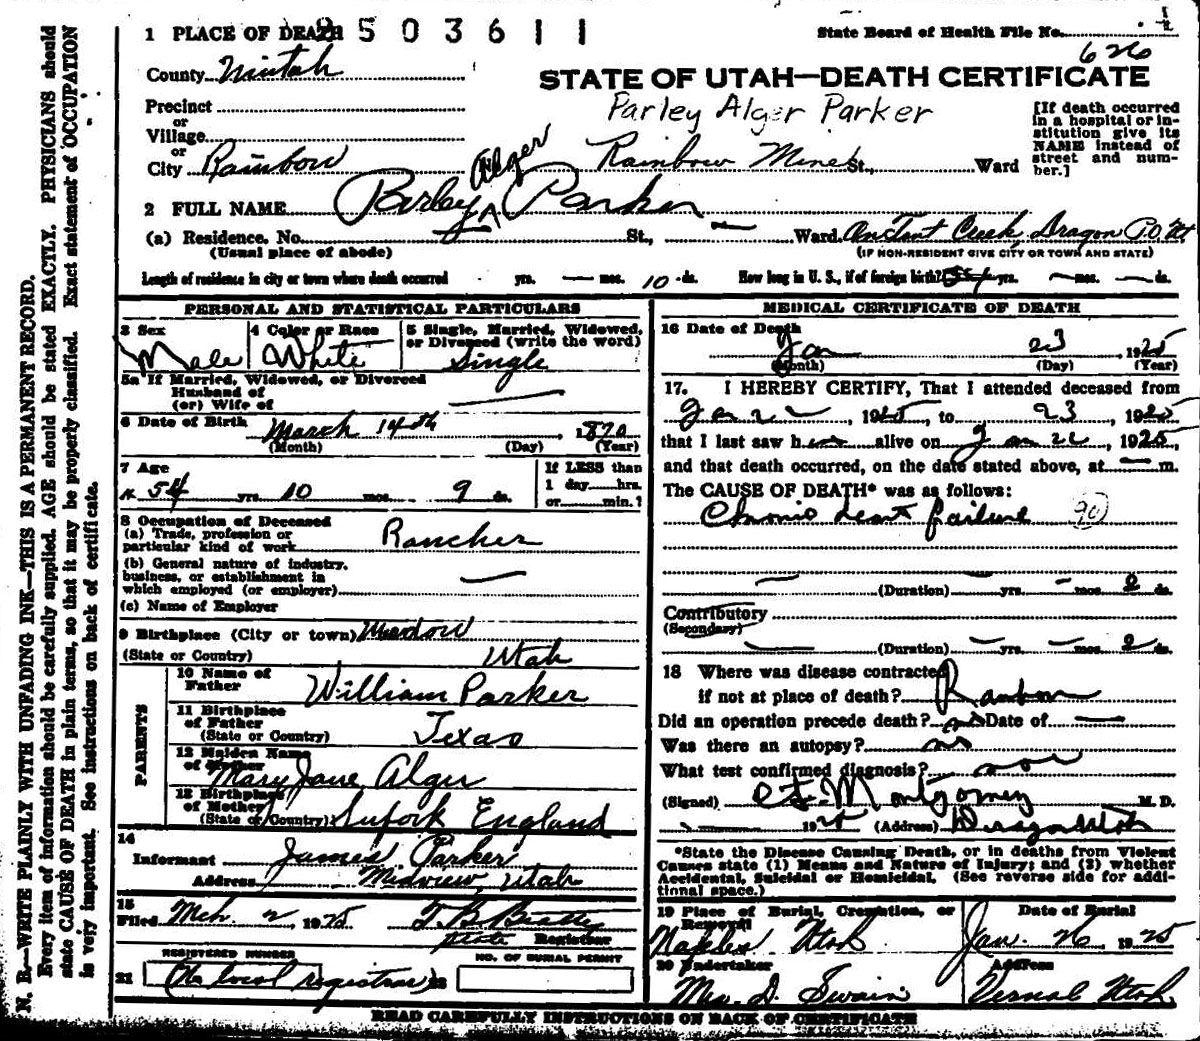 8503611
1 PLACE OF DEATH
State Board of Health File No.
626
County Uintah
STATE OF UTAH—DEATH CERTIFICATE
Precinct
or
Village
or
City Rainbow
Parley Alger Parker
Rainbow Mines St., Ward
[If death occurred
in a hospital or in-
stitution give its
NAME instead of
street and num-
ber.]
Alger
2 FULL NAME Parley ^ Parker
(a) Residence. No. St., — Ward. On Tent Creek, Dragon P.O. Ut
(Usual place of abode)
(IF NON-RESIDENT GIVE CITY OR TOWN AND STATE)
Length of residence in city or town where death occurred yrs. — mos. 10 ds.
How long in U. S., if of foreign birth? 54 yrs. — mos. — ds.
PERSONAL AND STATISTICAL PARTICULARS
3 Sex
Male
4 Color or Race
White
5 Single, Married, Widowed,
or Divorced (write the word)
Single
5a If Married, Widowed, or Divorced
Husband of
(or) Wife of —
6 Date of Birth March 14th, 1870
(Month) (Day) (Year)
7 Age
54 yrs. 10 mos. 9 ds.
If LESS than
1 day hrs.
or min.?
8 Occupation of Deceased
(a) Trade, profession or
particular kind of work Rancher
(b) General nature of industry,
business, or establishment in
which employed (or employer) —
(c) Name of Employer
9 Birthplace (City or town) Meadow
(State or Country) Utah
PARENTS
10 Name of
Father William Parker
11 Birthplace
of Father
(State or Country) Texas
12 Maiden Name
of Mother
Mary Jane Alger
13 Birthplace
of Mother
(State or Country) Sufork England
14
Informant James Parker
Address Midview, Utah
15
Filed Mch. 2 1925 T. B. Beatty
State Registrar
REGISTERED NUMBER
NO. OF BURIAL PERMIT
21 (No local registrar) 22
MEDICAL CERTIFICATE OF DEATH
16 Date of Death
Jan 23, 1925
(Month) (Day) (Year)
17. I HEREBY CERTIFY, That I attended deceased from
Jan 22, 1925, to 23, 1925
that I last saw him alive on Jan 22, 1925,
and that death occurred, on the date stated above, at — m.
The CAUSE OF DEATH* was as follows:
Chronic heart failure 90
— (Duration) yrs. — mos. 2 ds.
Contributory
(Secondary)
— (Duration) — yrs. — mos. 2 ds.
18 Where was disease contracted
if not at place of death? Rainbow
Did an operation precede death? no Date of —
Was there an autopsy? no
What test confirmed diagnosis?
(Signed) Montgomery M. D.
1925 (Address) Dragon Utah
*State the Disease Causing Death, or in deaths from Violent
Causes state (1) Means and Nature of Injury; and (2) whether
Accidental, Suicidal or Homicidal. (See reverse side for addi-
tional space.)
19 Place of Burial, Cremation, or
Removal
Naples Utah
Date of Burial
Jan. 26, 1925
20 Undertaker
Mrs. D. Swain
Address
Vernal Utah
READ CAREFULLY INSTRUCTIONS ON BACK OF CERTIFICATE
N. B.—WRITE PLAINLY WITH UNFADING INK—THIS IS A PERMANENT RECORD.
Every item of information should be carefully supplied. AGE should be stated EXACTLY. PHYSICIANS should
state CAUSE OF DEATH in plain terms, so that it may be properly classified. Exact statement of OCCUPATION
is very important. See instructions on back of certificate.